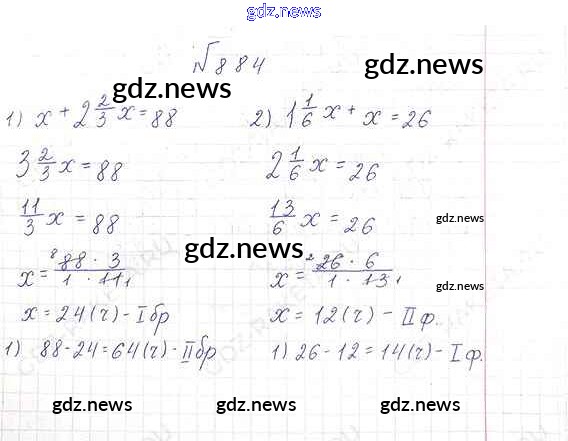 gdz.news
№884
gdz.news
gdz.news
1) x + 2 2/3 x = 88
3 2/3 x = 88
11/3 x = 88
x = 88 · 3 / 1 · 11 8 1
x = 24 (г) - I бр
1) 88 - 24 = 64 (г) - II бр
2) 1 1/6 x + x = 26
2 1/6 x = 26
13/6 x = 26
x = 26 · 6 / 1 · 13 2 1
x = 12 (г) - II ф.
1) 26 - 12 = 14 (г) - I ф.
gdz.news
gdz.news
gdz.news
gdz.news
gdz.news